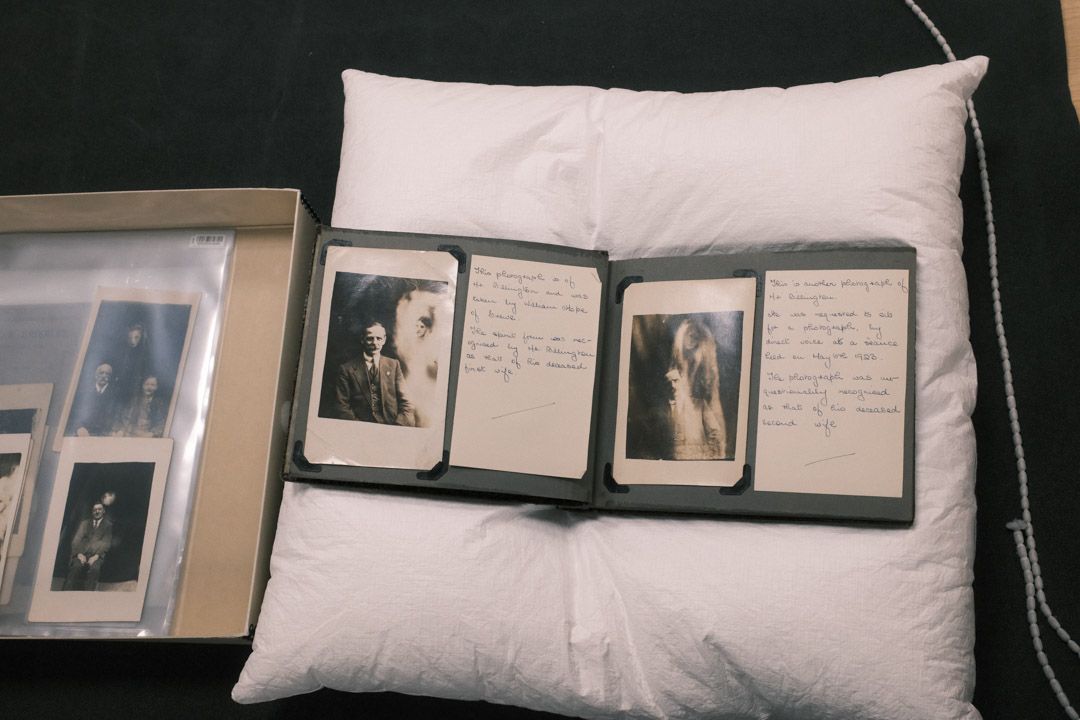 This photograph is of
Mr Billington and was
taken by William Hope
of Crewe.
The spirit form was rec-
ognised by Mr Billington
as that of his deceased
first wife
This is another photograph of
Mr Billington.
He was requested to sit
for a photograph, by
direct voice at a séance
held on May 6th 1923.
The photograph was un-
questionably recognised
as that of his deceased
second wife